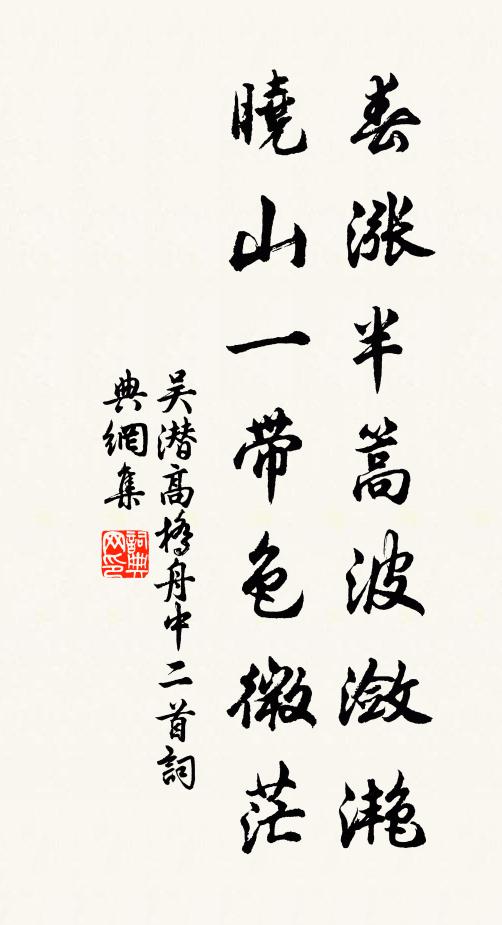 春涨半篙波潋滟
曉山一带色微茫
吴潜高橋舟中二首詞
典網集
詞典网印